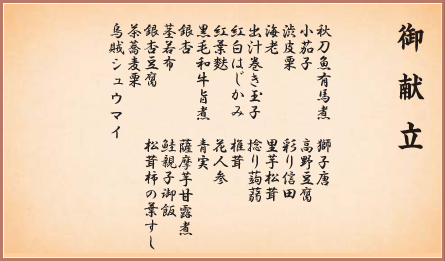 御献立
秋刀魚有馬煮
小茄子
渋皮栗
海老
出汁巻き玉子
紅白はじかみ
紅葉麩
黒毛和牛旨煮
銀杏
茎若布
銀杏豆腐
茶蕎麦栗
烏賊シュウマイ
獅子唐
高野豆腐
彩り信田
里芋松茸
捻り蒟蒻
椎茸
花人参
青実
薩摩芋甘露煮
鮭親子御飯
松茸柿の葉すし